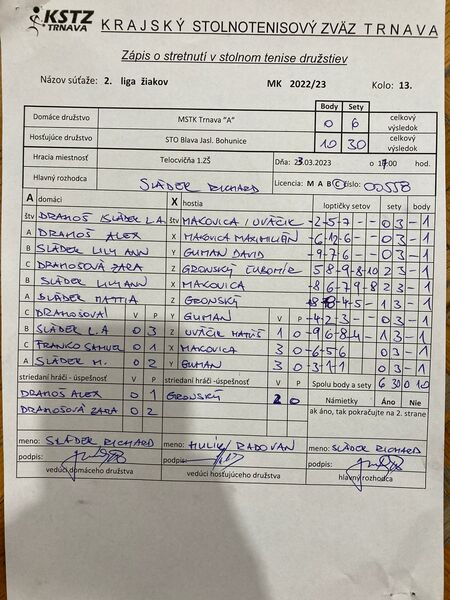 KSTZ
TRNAVA
KRAJSKÝ STOLNOTENISOVÝ ZVÄZ TRNAVA
Zápis o stretnutí v stolnom tenise družstiev
Názov súťaže: 2. liga žiakov MK 2022/23 Kolo: 13.
Body Sety
Domáce družstvo MSTK Trnava "A" 0 6 celkový výsledok
Hosťujúce družstvo STO Blava Jasl. Bohunice 10 30 celkový výsledok
Hracia miestnosť Telocvičňa 1.ZŠ Dňa: 23.03.2023 o 17:00 hod.
Hlavný rozhodca SLÁDEK RICHARD Licencia: M A B C číslo: 00558
A domáci X hostia loptičky setov sety body
štv DRAHOŠ /SLÁDEK L.A. štv MAKOVICA / UVÁČIK -2 -5 -7 - - 0 3 - 1
A DRAHOŠ ALEX X MAKOVICA MAXIMILIÉN -6 -12 -6 - - 0 3 - 1
B SLÁDEK LILY ANN Y GUMAN DAVID -9 -7 -6 - - 0 3 - 1
C DRAHOŠOVÁ ZARA Z GRONSKÝ ĽUBOMÍR 5 8 -9 -8 -10 2 3 - 1
B SLÁDEK LILY ANN X MAKOVICA -8 6 -7 9 -8 2 3 - 1
A SLÁDEK MATTIA Z GRONSKÝ 1 3 - 1
C DRAHOŠOVÁ V P Y GUMAN V P -4 -2 -3 - - 0 3 - 1
B SLÁDEK L.A 0 3 Z UVÁČIK MATÚŠ 1 0 -9 6 -8 -4 - 1 3 - 1
C FRANKO SAMUEL 0 1 X MAKOVICA 3 0 -6 -5 -6 0 3 - 1
A SLÁDEK M. 0 2 Y GUMAN 3 0 -3 -1 -1 0 3 - 1
striedaní hráči - úspešnosť V P striedaní hráči -úspešnosť V P Spolu body a sety 6 30 0 10
DRAHOŠ ALEX 0 1 GRONSKÝ 2 0 Námietky Áno Nie
DRAHOŠOVÁ ZARA 0 2 ak áno, tak pokračujte na 2. strane
meno: SLÁDEK RICHARD meno: HULÍK RADOVAN meno: SLÁDEK RICHARD
podpis: podpis: podpis:
vedúci domáceho družstva vedúci hosťujúceho družstva hlavný rozhodca